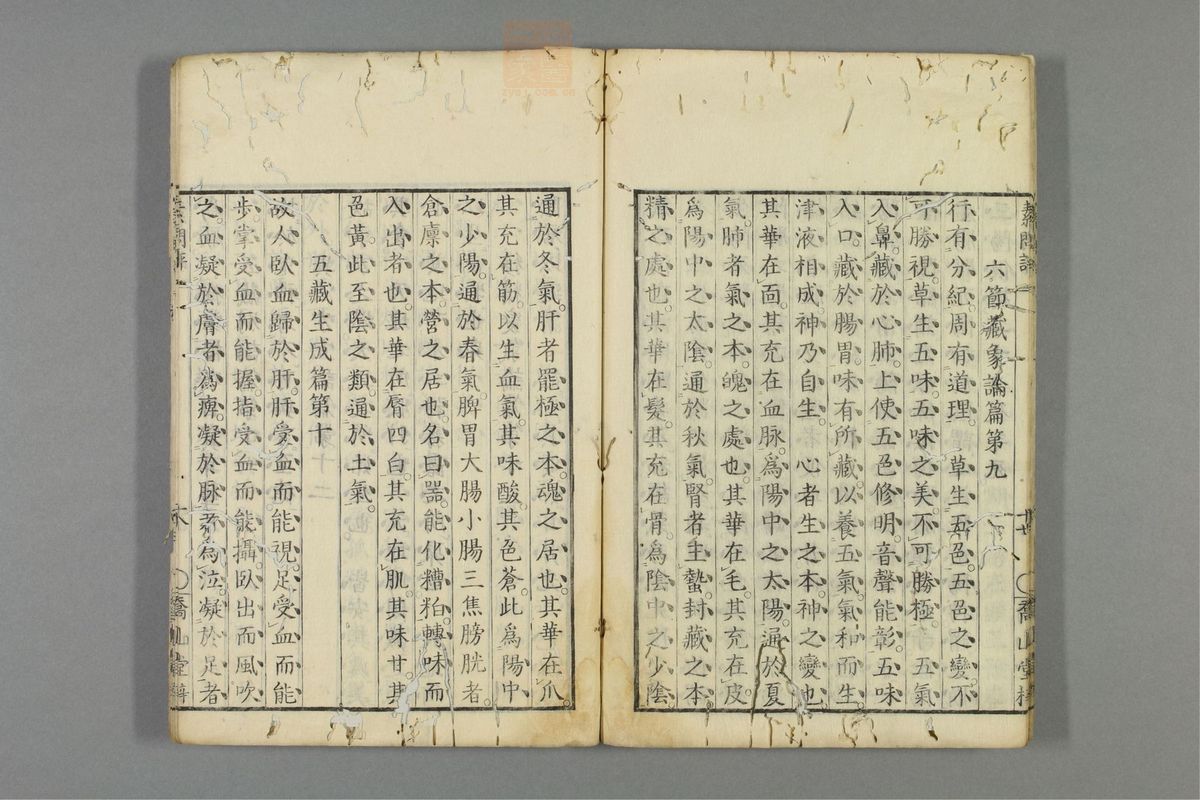 六節藏象論篇第九
行有分紀周有道理草生五色五色之變不
可勝視草生五味五味之美不可勝極五氣
入鼻藏於心肺上使五色修明音聲能彰五味
入口藏於腸胃味有所藏以養五氣氣和而生
津液相成神乃自生心者生之本神之變也
其華在面其充在血脉爲陽中之太陽通於夏
氣肺者氣之本魄之處也其華在毛其充在皮
爲陽中之太陰通於秋氣腎者主蟄封藏之本
精之處也其華在髮其充在骨爲陰中之少陰
通於冬氣肝者罷極之本魂之居也其華在爪
其充在筋以生血氣其味酸其色蒼此爲陽中
之少陽通於春氣脾胃大腸小腸三焦膀胱者
倉廩之本營之居也名曰器能化糟粕轉味而
入出者也其華在脣四白其充在肌其味甘其
色黃此至陰之類通於土氣
五藏生成篇第十
故人臥血歸於肝肝受血而能視足受血而能
步掌受血而能握指受血而能攝臥出而風吹
之血凝於膚者爲痺凝於脉者爲泣凝於足者